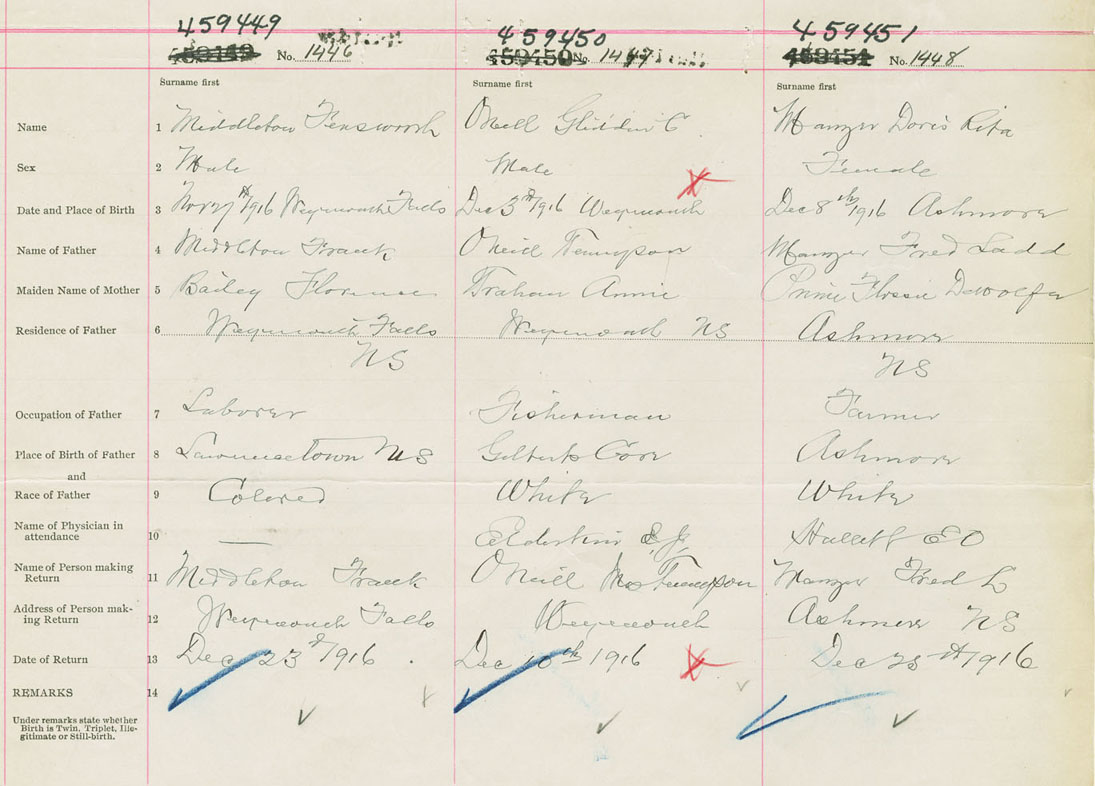 459449 459450 459451
No. 1446 No. 1447 No. 1448
Surname first Surname first Surname first
Name 1 Middleton Tensworth Oneill Gliddin C Manzer Doris Rita
Sex 2 Male Male Female
Date and Place of Birth 3 Nov 27th 1916 Weymouth Falls Dec 3rd 1916 Weymouth Dec 8th 1916 Ashmore
Name of Father 4 Middleton Frank O'Neill Tennyson Manzer Fred Ladd
Maiden Name of Mother 5 Bailey Florence Trahan Annie Prime Flossie Dewolfe
Residence of Father 6 Weymouth Falls Weymouth NS Ashmore
NS NS
Occupation of Father 7 Laborer Fisherman Farmer
Place of Birth of Father 8 Lawrencetown NS Gilberts Cove Ashmore
and
Race of Father 9 Colored White White
Name of Physician in
attendance 10 — Elderkin E.J. Hallett EO
Name of Person making
Return 11 Middleton Frank O'Neill Mrs Tennyson Manzer Fred L
Address of Person mak-
ing Return 12 Weymouth Falls Weymouth Ashmore NS
Date of Return 13 Dec 23rd 1916 Dec 10th 1916 Dec 25th 1916
REMARKS 14
Under remarks state whether
Birth is Twin, Triplet, Ille-
gitimate or Still-birth.